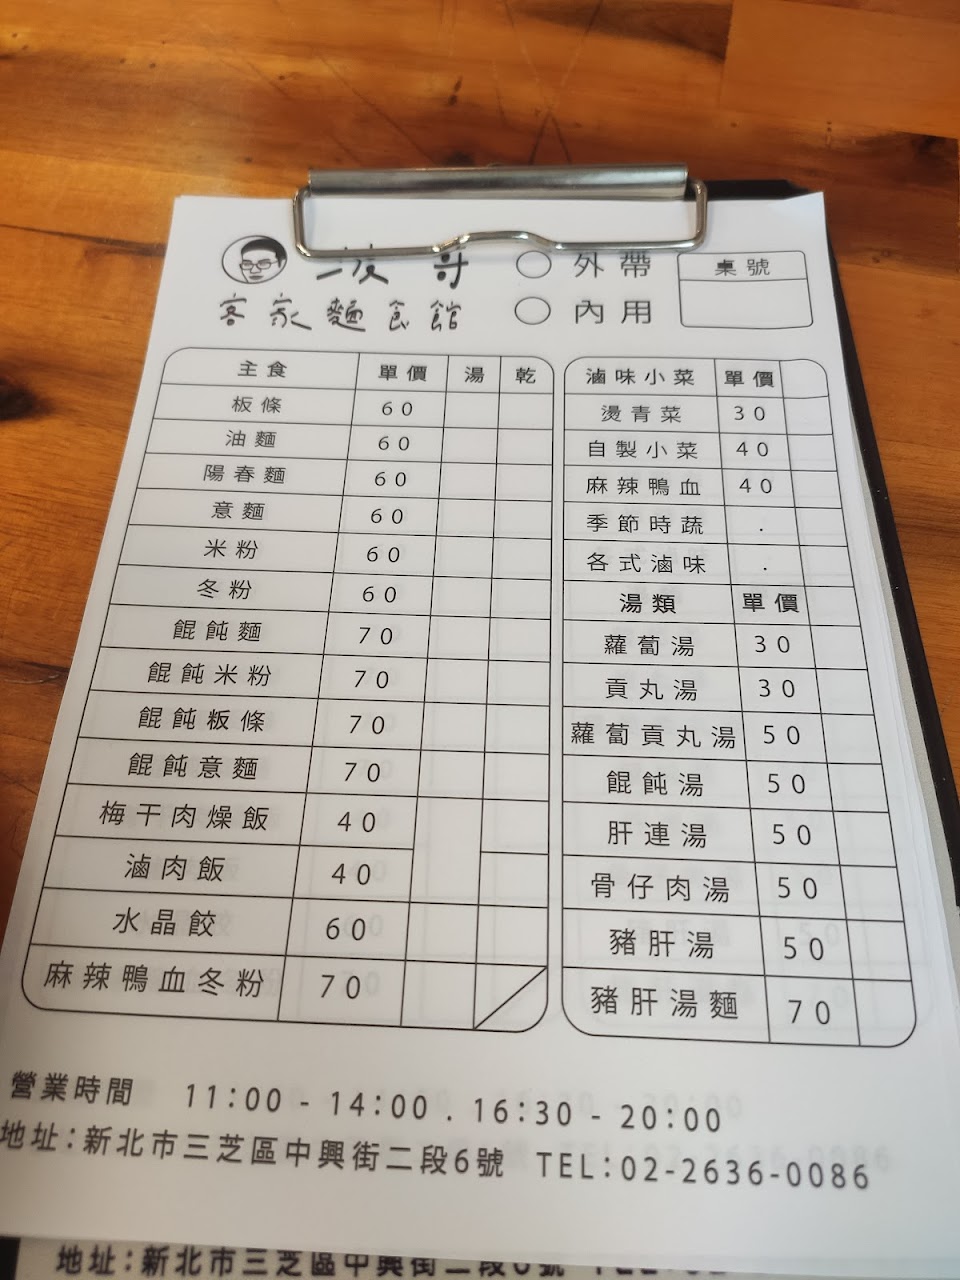 哥
客家麵食館
外帶
內用
桌號
主食 單價 湯 乾
板條 60
油麵 60
陽春麵 60
意麵 60
米粉 60
冬粉 60
餛飩麵 70
餛飩米粉 70
餛飩粄條 70
餛飩意麵 70
梅干肉燥飯 40
滷肉飯 40
水晶餃 60
麻辣鴨血冬粉 70
滷味小菜 單價
燙青菜 30
自製小菜 40
麻辣鴨血 40
季節時蔬 .
各式滷味 .
湯類 單價
蘿蔔湯 30
貢丸湯 30
蘿蔔貢丸湯 50
餛飩湯 50
肝連湯 50
骨仔肉湯 50
豬肝湯 50
豬肝湯麵 70
營業時間 11:00 - 14:00 . 16:30 - 20:00
地址:新北市三芝區中興街二段6號 TEL:02-2636-0086
地址:新北市三芝區中興街二段6號